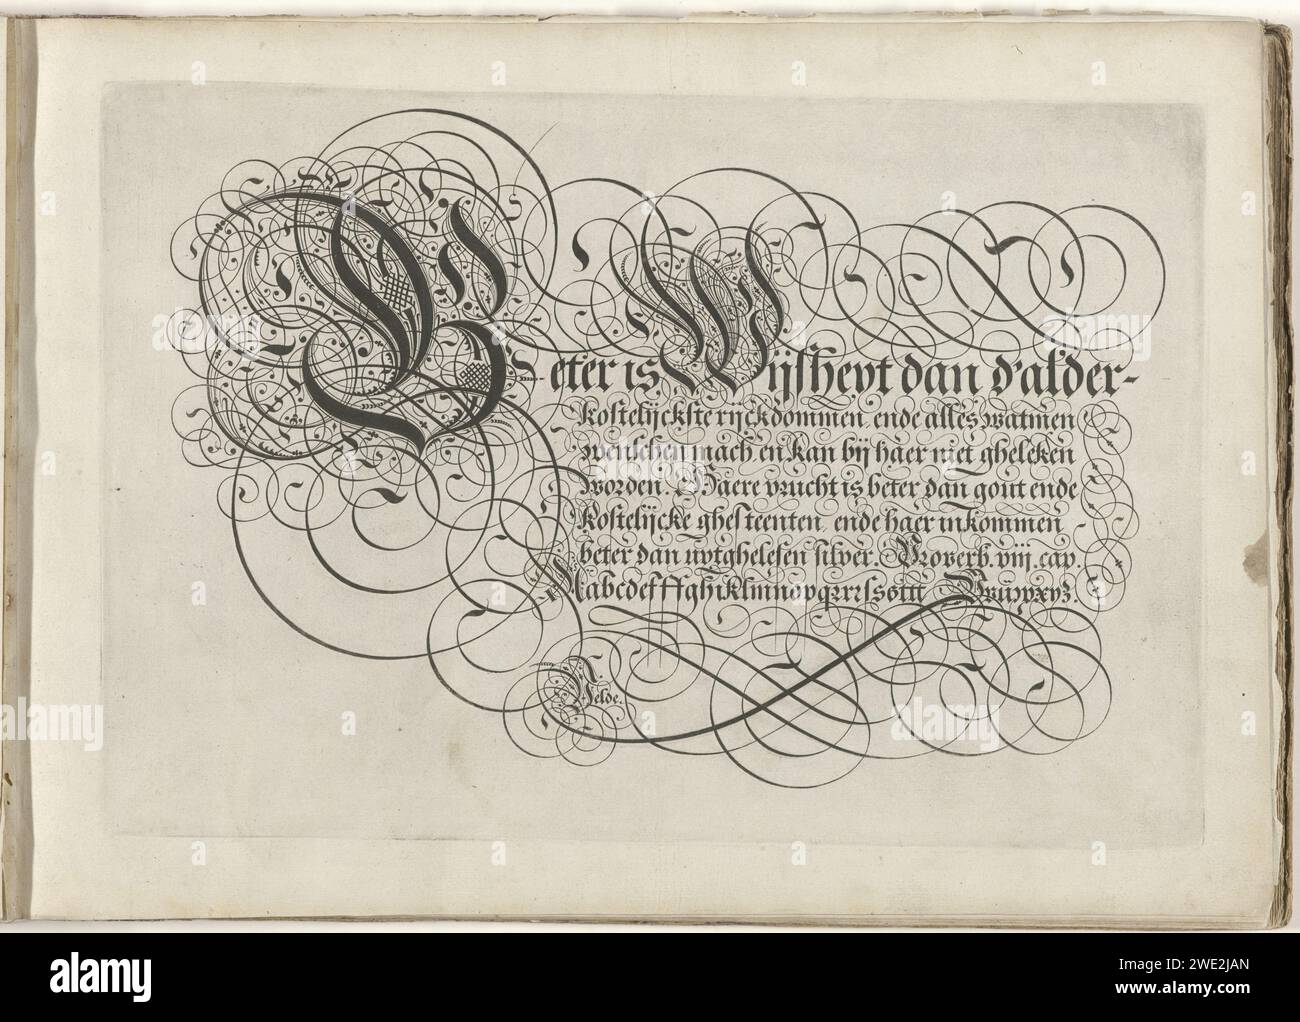 Beter is Wijsheyt dan d'alder-
kostelijckste rijckdommen, ende alles watmen
wenschen mach en kan bij haer niet gheleken
worden. Haere vrucht is beter dan gout ende
kostelijcke ghesteenten, ende haer inkommen
beter dan uytghelesen silver. Proverb. viij. cap.
Velde.
alamy
Image ID: 2WE2JAN
www.alamy.com